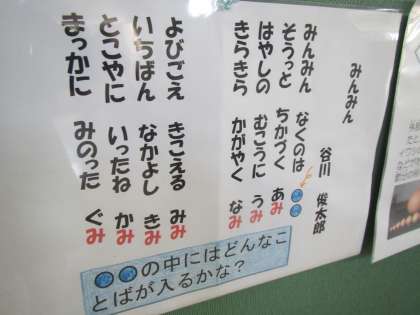 みんみん
谷川 俊太郎
みんみん なくのは ●●
そうっと ちかづく あみ
はやしの むこうに うみ
きらきら かがやく なみ
よびごえ きこえる みみ
いちばん なかよし きみ
とこやに いったね かみ
まっかに みのった ぐみ
●●の中にはどんなこ
とばが入るかな？